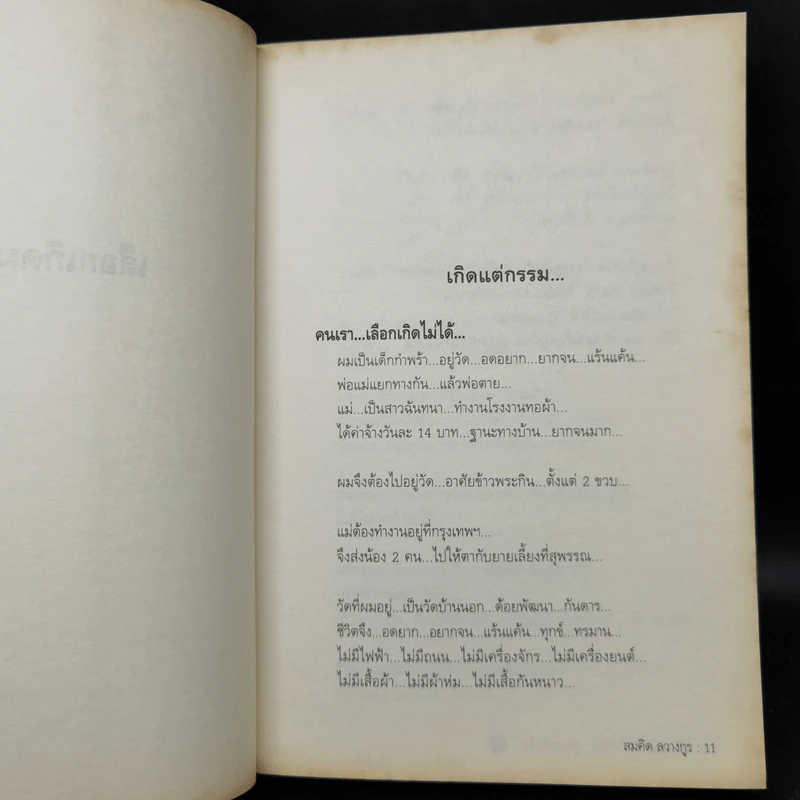 เกิดแต่กรรม...
คนเรา...เลือกเกิดไม่ได้...
ผมเป็นเด็กกำพร้า...อยู่วัด...อดอยาก...ยากจน...แร้นแค้น...
พ่อแม่แยกทางกัน...แล้วพ่อตาย...
แม่...เป็นสาวฉันทนา...ทำงานโรงงานทอผ้า...
ได้ค่าจ้างวันละ 14 บาท...ฐานะทางบ้าน...ยากจนมาก...
ผมจึงต้องไปอยู่วัด...อาศัยข้าวพระกิน...ตั้งแต่ 2 ขวบ...
แม่ต้องทำงานอยู่ที่กรุงเทพฯ...
จึงส่งน้อง 2 คน...ไปให้ตากับยายเลี้ยงที่สุพรรณ...
วัดที่ผมอยู่...เป็นวัดบ้านนอก...ด้อยพัฒนา...กันดาร...
ชีวิตจึง...อดยาก...อยากจน...แร้นแค้น...ทุกข์...ทรมาน...
ไม่มีไฟฟ้า...ไม่มีถนน...ไม่มีเครื่องจักร...ไม่มีเครื่องยนต์...
ไม่มีเสื้อผ้า...ไม่มีผ้าห่ม...ไม่มีเสื้อกันหนาว...
สมคิด ลวางกูร : 11